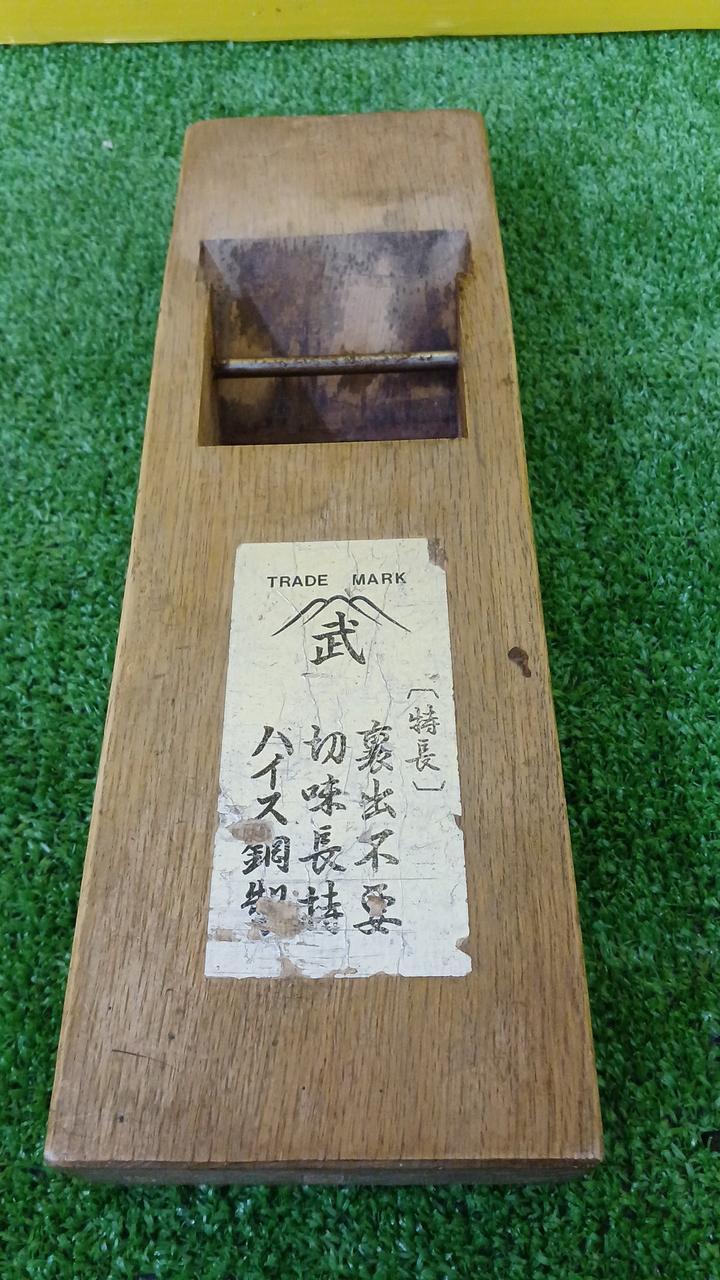 TRADE MARK
武
〔特長〕
裏出不要
切味長持
ハイス鋼製